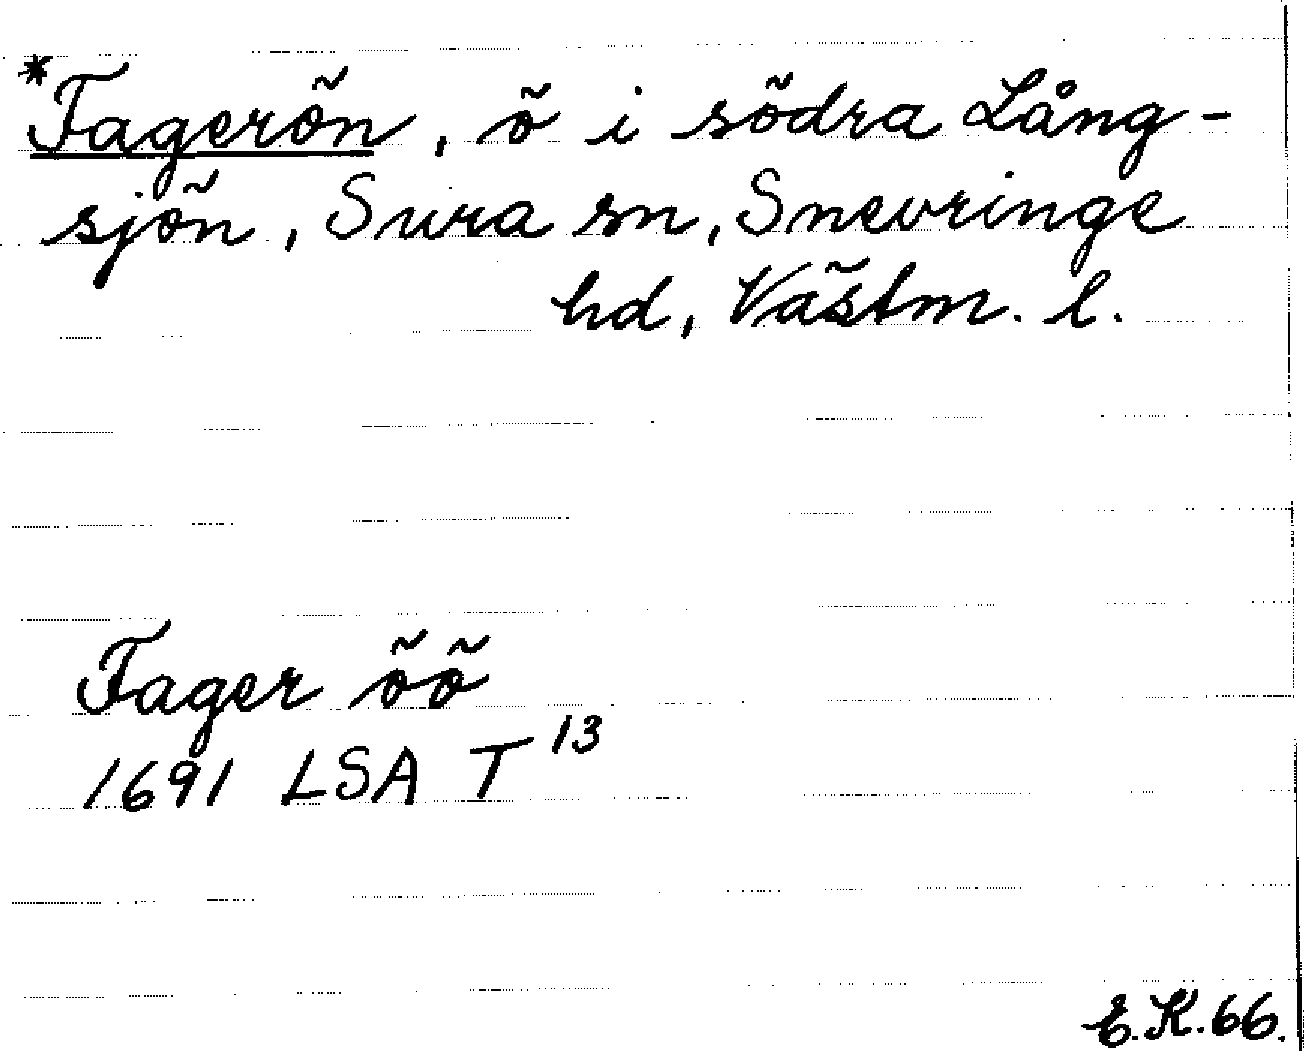 *Fagerön, ö i södra Lång-
sjön, Sura sn, Snevringe
hd, Västm. l.
Fager öö
1691 LSA T 13
E.K.66.